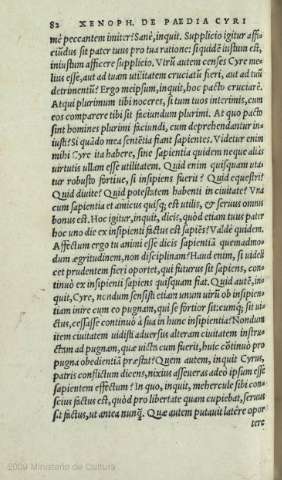 82 XENOPH. DE PAEDIA CYRI
mè peccantem imiter? Sanè, inquit. Supplicio igitur affi
ciẽdus sit pater tuus pro tua ratione: si quidẽ iustum est,
iniustum afficere supplicio. Virũ autem censes Cyre me
lius esse, aut ad tuam utilitatem cruciatũ fieri, aut ad tuũ
detrimentũ? Ergo meipsum, inquit, hoc pacto cruciarẽ.
Atqui plurimum tibi noceres, si tum tuos interimis, cum
eos comparere tibi sit faciundum plurimi. At quo pacto
sint homines plurimi faciundi, cum deprehendantur in=
iusti? Si quãdo mea sentẽtia fiant sapientes. Videtur enim
mihi Cyre ita habere, sine sapientia quidem neque aliæ
uirtutis ullam esse utilitatem. Quid enim quisquam uta=
tur robusto fortiue, si insipiens fuerit? Quid equestri?
Quid diuite? Quid potestatem habenti in ciuitate? Vna
cum sapientia et amicus quisq; est utilis, & seruus omnis
bonus est. Hoc igitur, inquit, dicis, quòd etiam tuus pater
hoc uno die ex insipienti factus est sapiẽs? Valdè quidem.
Affectum ergo tu animi esse dicis sapientiã quemadmo=
dum ægritudinem, non disciplinam? Haud enim, si uideli
cet prudentem fieri oportet, qui futurus sit sapiens, con=
tinuò ex insipienti sapiens quisquam fiat. Quid autẽ, in=
quit, Cyre, nondum sensisti etiam unum uirũ ob insipien=
tiam inire cum eo pugnam, qui se fortior sit: cumq; sit ui=
ctus, cessasse continuò à sua in hunc insipientia? Nondum
item ciuitatem uidisti aduersus alteram ciuitatem instru=
ctam ad pugnam, quæ uicta cum fuerit, huic cõtinuò pro
pugna obedientiã præstat? Quem autem, inquit Cyrus,
patris conflictum dicens, nixius asseueras adeò ipsum esse
sapientem effectum? In quo, inquit, mehercule sibi con=
scius factus est, quòd pro libertate quam cupiebat, seruus
sit factus, ut antea nunq̃. Quæ autem putauit latere opor
tere
©2009 Ministerio de Cultura